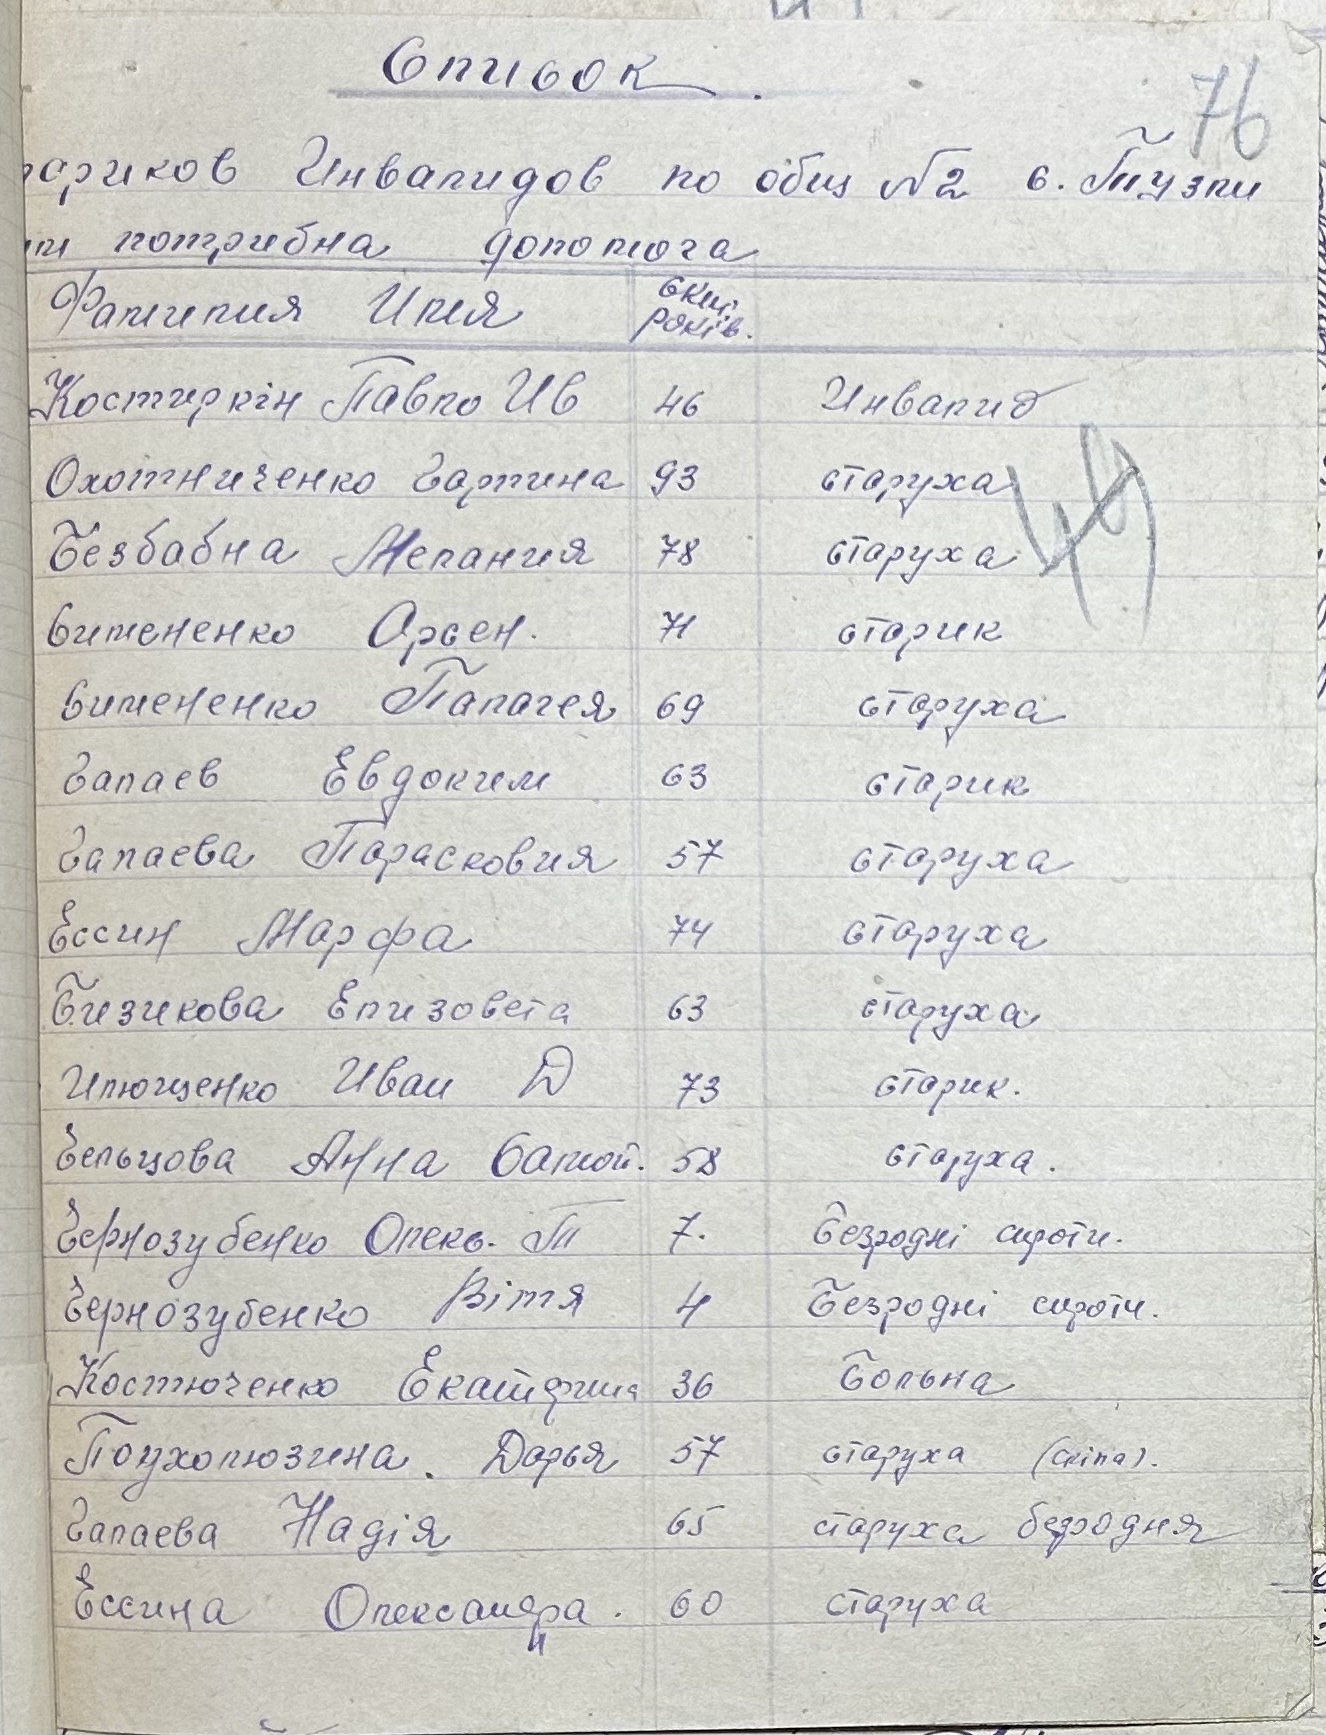 Список.
76
тариков Инвалидов по общ №2 с. Пузли
потрибна допомога
Фамилия Имя скіл. років.
Костиркін Павло Ив 46 Инвалид
Охотниченко Гарпина 93 старуха
Безбабна Мелания 78 старуха
Симененко Арсен. 71 старик
Симененко Палагея 69 старуха
Галаев Евдоким 63 старик
Галаева Парасковия 57 старуха
Ессин Марфа 74 старуха
Бизикова Елизовета 63 старуха
Илющенко Иван Д 73 старик.
Бельцова Анна Самой. 58 старуха.
Чернозубенко Олекс. П 7. Безродні сироти.
Чернозубенко Вітя 4 Безродні сироти.
Костюченко Екатерина 36 Больна
Поухолюзина. Дарья 57 старуха (сліпа).
Галаева Надія 65 старуха безродня
Ессина Олександра. 60 старуха